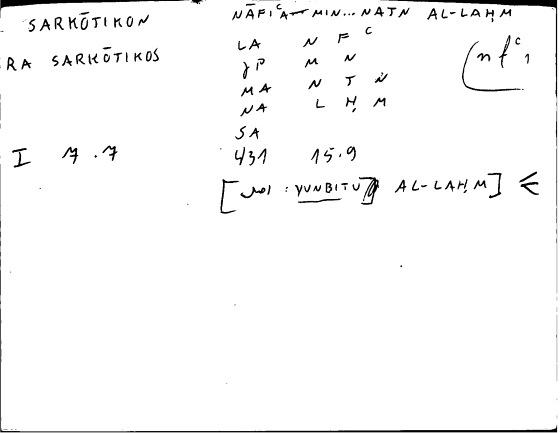 SARKŌTIKON NĀFIᶜA MIN... NATN AL-LAḤM
RA SARKŌTIKOS LA N F ᶜ (nfᶜ 1
γP M N
MA N T N
NA L Ḥ M
SA
I 7.7 431 15.9
[اصل : YUNBITU] AL-LAḤM] ∈